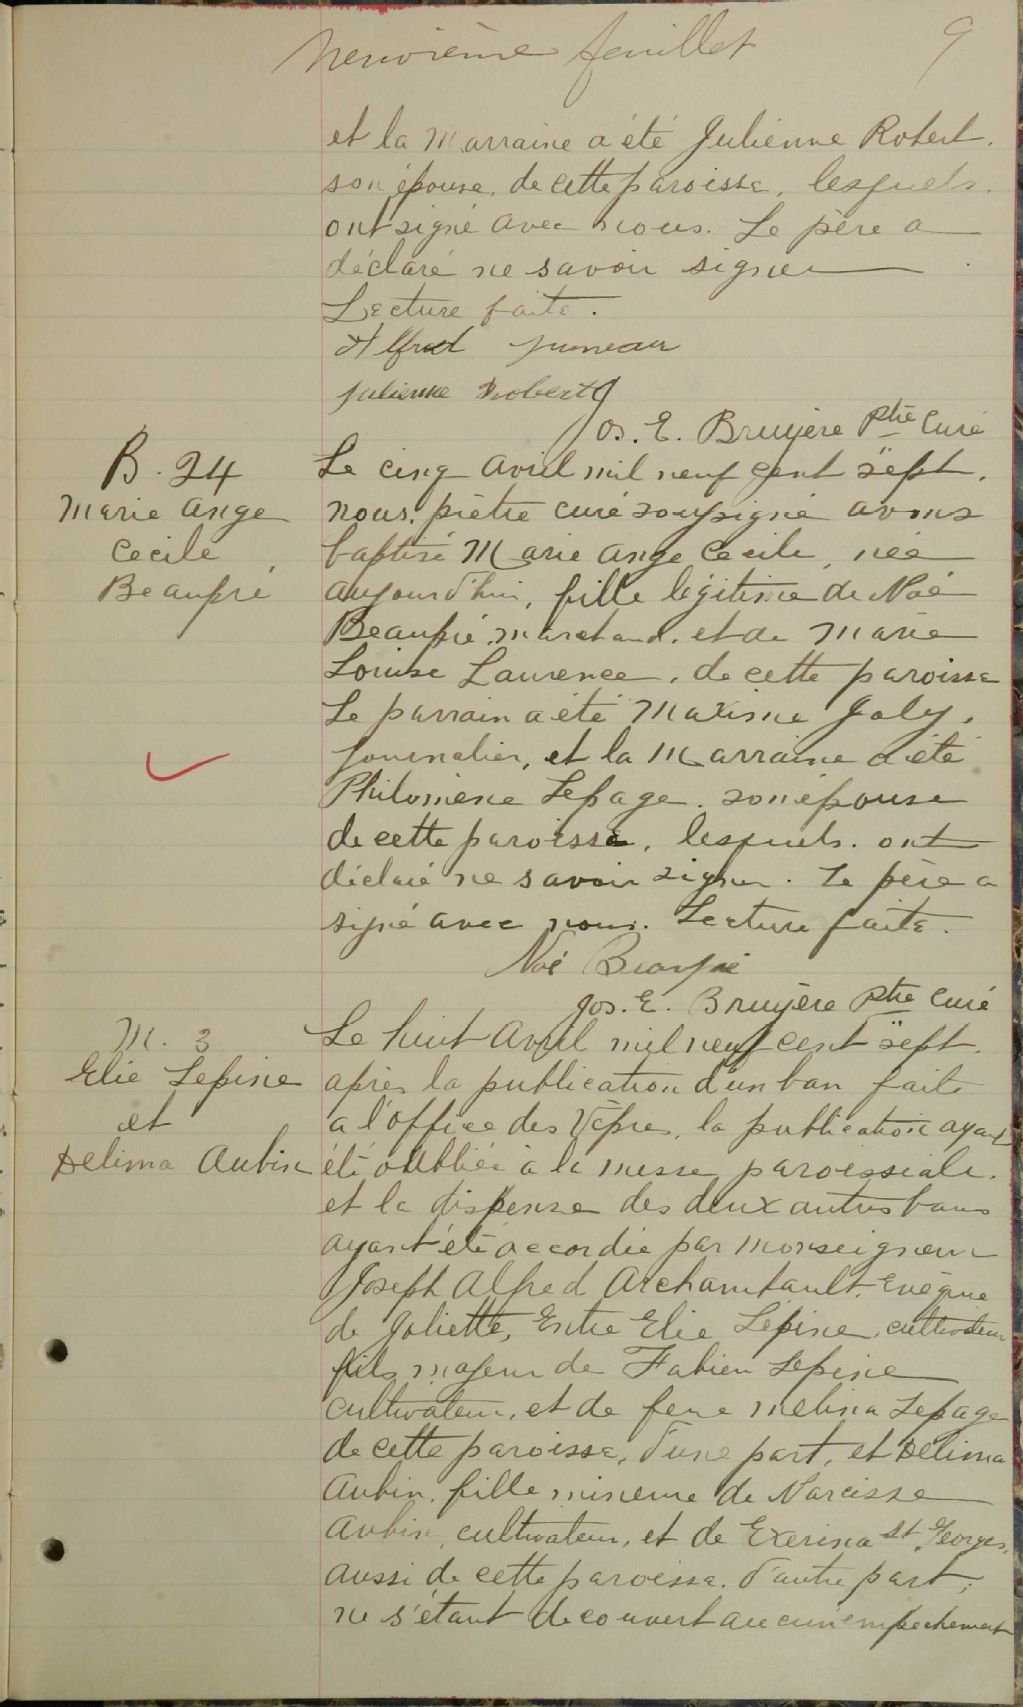 neuvième feuillet 9
et la Marraine a été Julienne Robert.
son épouse, de cette paroisse, lesquels.
ont signé avec nous. Le père a
déclaré ne savoir signer
Lecture faite.
Alfred Juneau
Julienne Robert
Jos. E. Bruyère Ptre Curé
B. 24
Marie Ange
Cecile
Beaupré
Le cinq Avril mil neuf cent sept.
nous, prêtre curé soussigné avons
baptisé Marie Ange Cecile, née
aujourd'hui, fille légitime de Noé
Beaupré, marchand, et de Marie
Louise Laurence, de cette paroisse
Le parrain a été Maxime Joly,
journalier, et la Marraine a été
Philomène Lepage, son épouse
de cette paroisse, lesquels. ont
déclaré ne savoir signer. Le père a
signé avec nous. Lecture faite.
Noé Beaupré
Jos. E. Bruyère Ptre Curé
M. 3
Elie Lepine
et
Delima Aubin
Le huit Avril mil neuf cent sept.
après la publication d'un ban faite
a l'office des Vêpres, la publication ayant
été oubliée à la messe paroissiale.
et la dispense des deux autres bans
ayant été accordée par Monseigneur
Joseph Alfred Archambault, Evêque
de Joliette, Entre Elie Lépine, cultivateur
fils majeur de Fabien Lepine
cultivateur, et de feue Melina Lepage
de cette paroisse, d'une part, et Delima
Aubin, fille mineure de Narcisse
Aubin, cultivateur, et de Exerina St Georges,
aussi de cette paroisse, d'autre part;
ne s'étant decouvert aucun empêchement